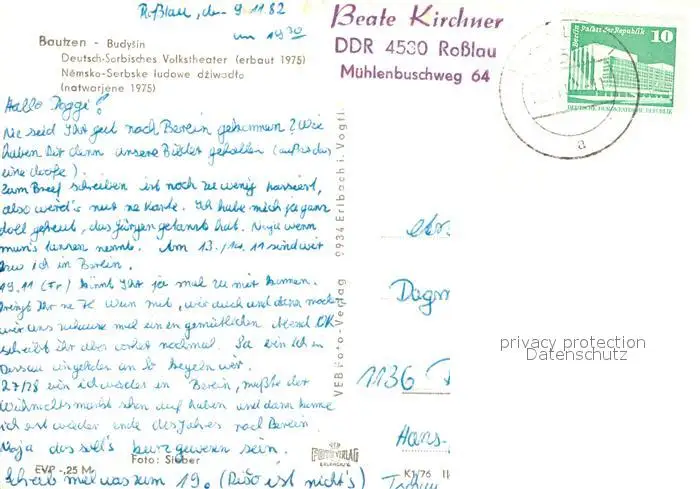 Roßlau, den 9.11.82
um 19³⁰
Bautzen - Budyšin
Deutsch-Sorbisches Volkstheater (erbaut 1975)
Němsko-Serbske ludowe dźiwadło
(natwarjene 1975)
Beate Kirchner
DDR 4530 Roßlau
Mühlenbuschweg 64
Berlin Palast der Republik
10
DEUTSCHE DEMOKRATISCHE REPUBLIK
a
Hallo Daggi!
Wie seid Ihr gut nach Berlin gekommen? Wie
haben Dir denn unsere Bilder gefallen (außer das
eine doofe).
Zum Brief schreiben ist noch zu wenig passiert,
also wird's nur ne Karte. Ich habe mich ja ganz
doll gefreut, das Jürgen getanzt hat. Naja wenn
man's tanzen nennt. Am 13./14.11 sind wir
bzw ich in Berlin.
19.11 (Fr) könnt Ihr ja mal zu mir kommen.
bringt Ihr ne Wein mit, wir auch und dann machen
wir uns zuhause mal einen gemütlichen Abend. OK
schreibt Ihr aber vorher nochmal. Sa bin ich in
Dessau eingeladen an So kegeln wir.
27/28 bin ich wieder in Berlin, müßte der
Weihnachtsmarkt schon auf haben und dann komme
ich erst wieder ende des Jahres nach Berlin.
Naja das soll's kurz gewesen sein.
Schreib mal was zum 19. (Disko ist nicht's)
EVP -,25 M
Foto: Sieber
VEB Foto-Verlag 9934 Erlbach i. Vogtl.
FOTO VERLAG
ERLBACH
K1/76
Dagm
1136
Hans-
privacy protection
Datenschutz